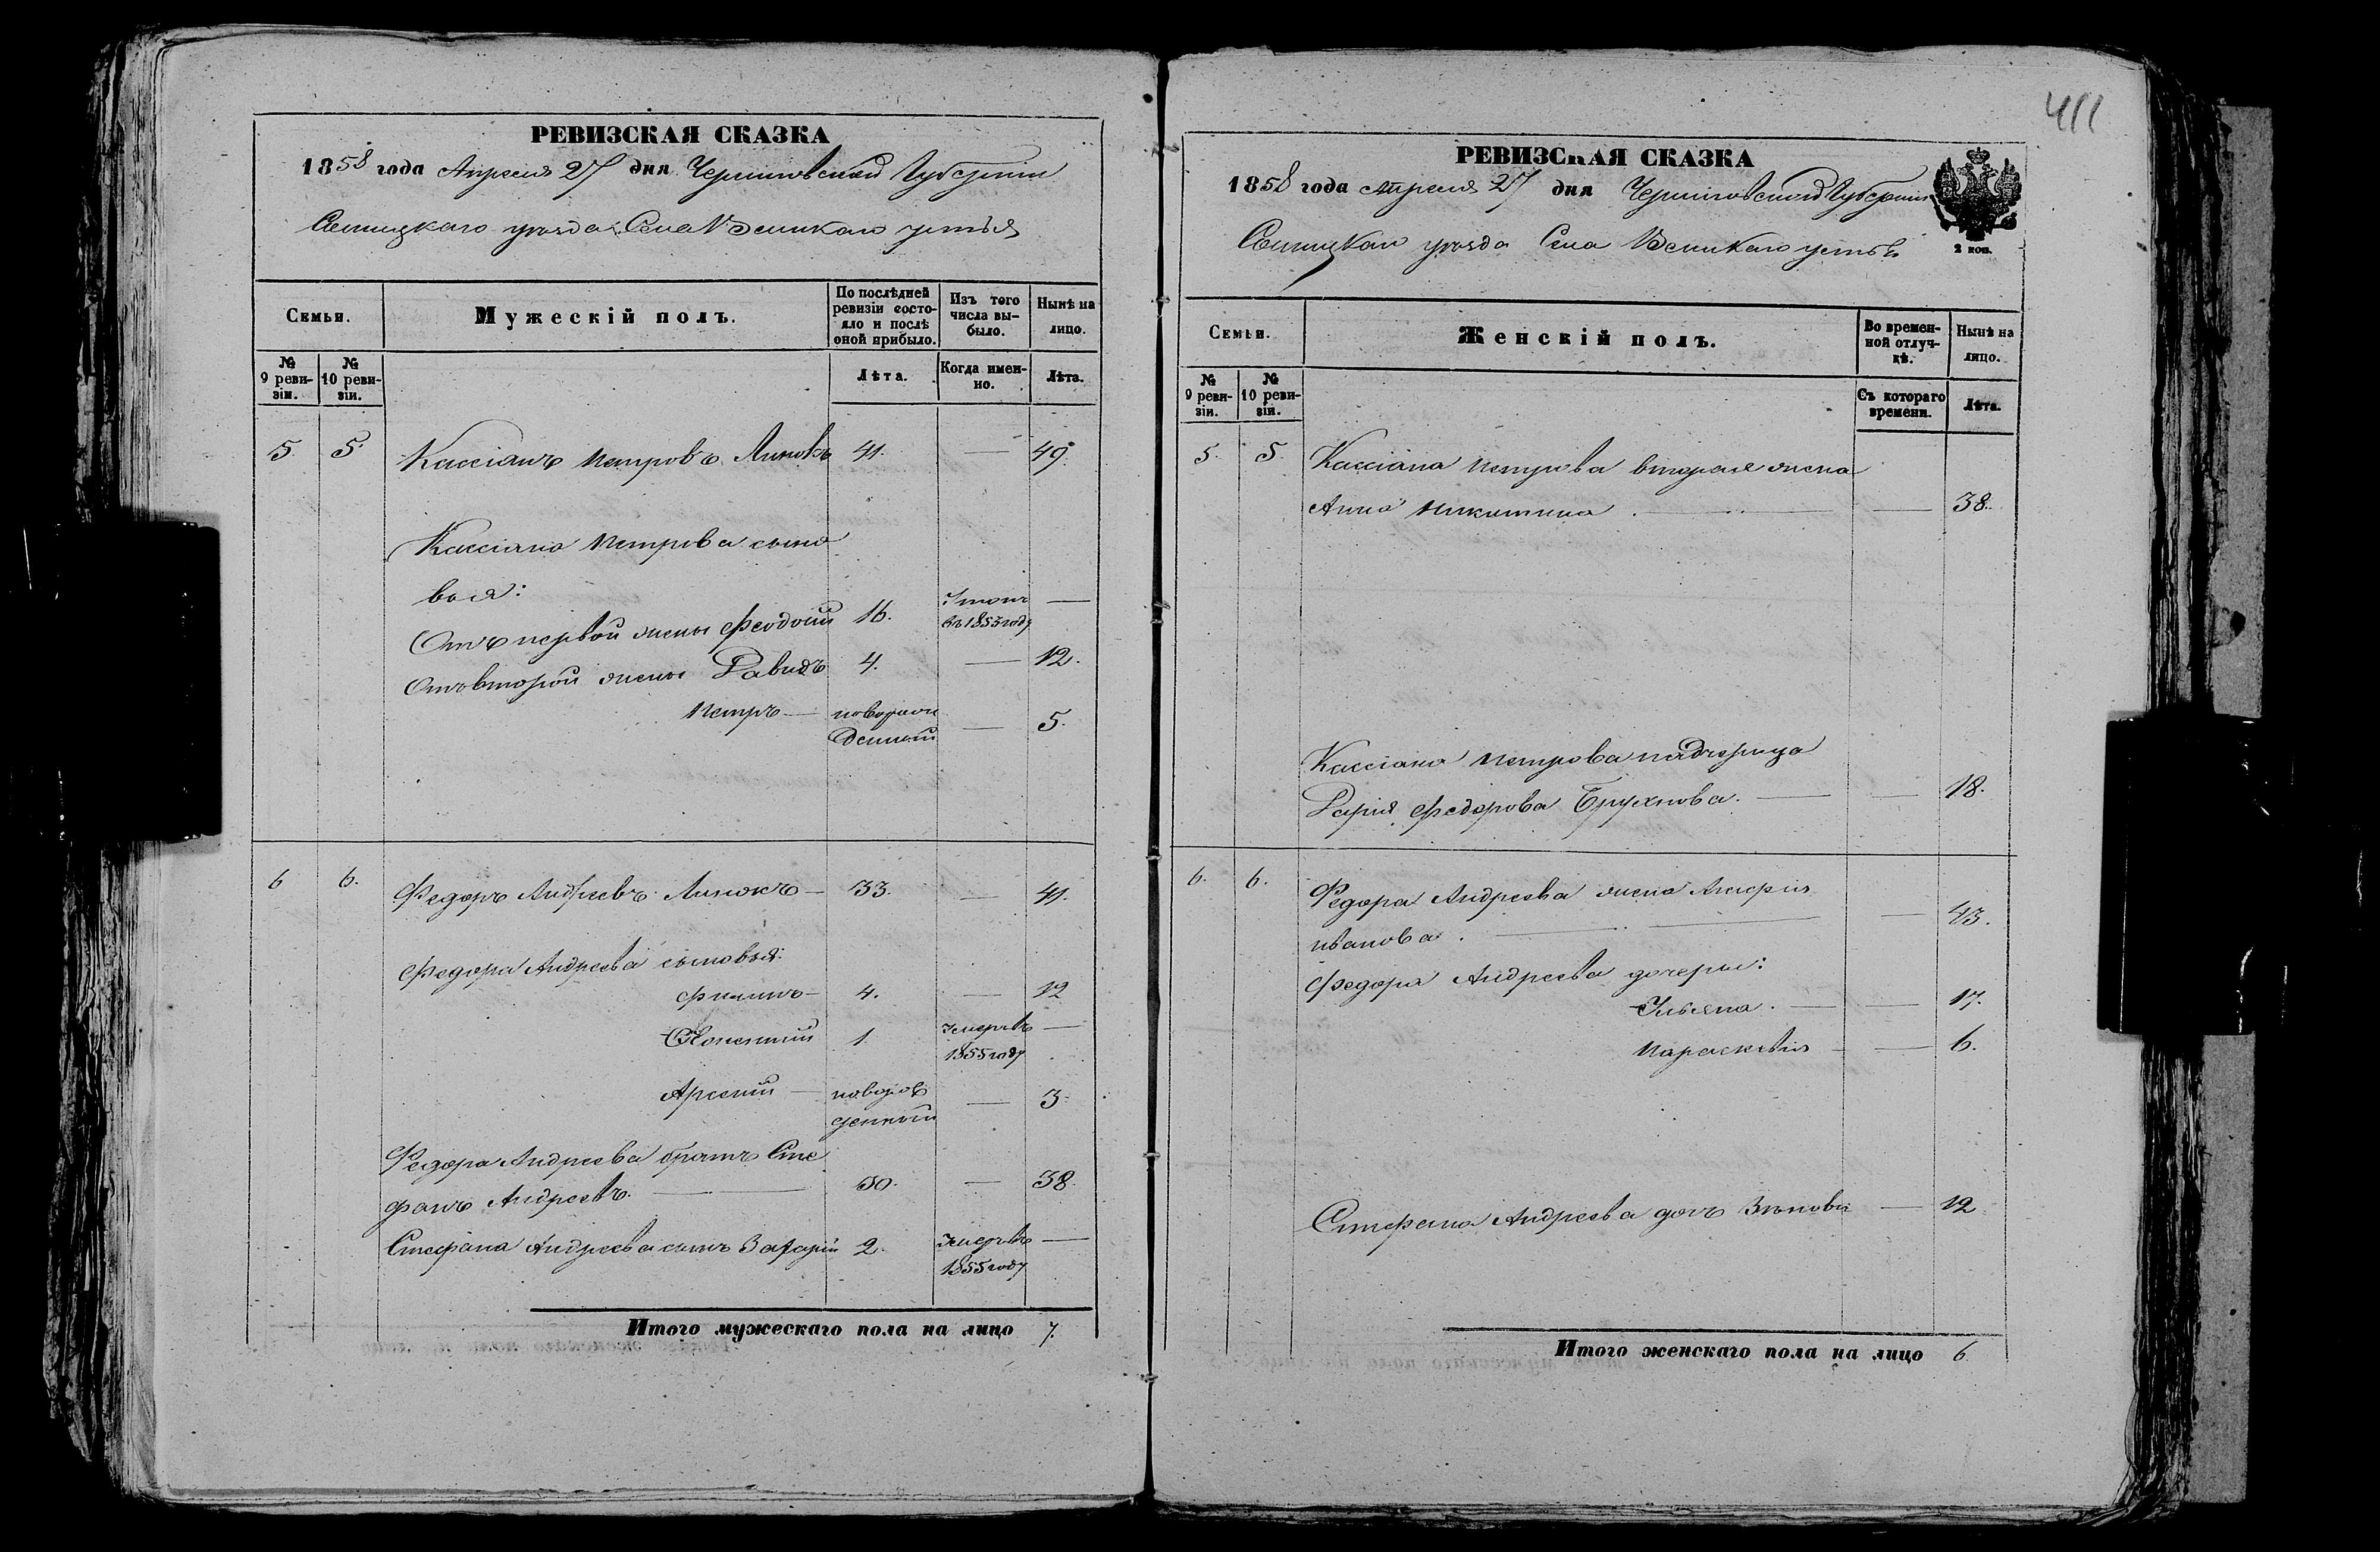 РЕВИЗСКАЯ СКАЗКА
1858 года Апреля 27 дня Черниговской Губерніи
Сосницкаго уѣзда Села Великаго устья
Семьи.
Мужескій полъ.
По послѣдней ревизіи состояло и послѣ оной прибыло.
Изъ того числа выбыло.
Нынѣ на лицо.
№ 9 ревизіи.
№ 10 ревизіи.
Лѣта.
Когда именно.
Лѣта.
5. 5. Кассіанъ Петровъ 41. — 49.
Кассіана Петрова сыно
вья:
Отъ первой жены Феодосій 16. — 
въ 1853 году
Отъ второй жены Давидъ 4. — 12.
Петръ — новорож
денный — 5.
6 6. Федоръ Андреевъ Линокъ — 33. — 41.
Федора Андреева сыновья:
Филипъ — 4. — 12
1. умеръ въ —
1855 году
Арсений — новорож
денный — 3.
Федора Андреева братъ Сте
фанъ Андреевъ. — 30. — 38.
Стефана Андреева сынъ Захарій 2. умеръ въ —
1855 году
Итого мужескаго пола на лицо 7.
411
РЕВИЗСКАЯ СКАЗКА
1858 года Апреля 27 дня Черниговской Губерніи
Сосницкаго уѣзда Села Великаго устья
2 коп.
Семьи.
Женскій полъ.
Во временной отлучкѣ.
Нынѣ на лицо.
№ 9 ревизіи.
№ 10 ревизіи.
Съ котораго времени.
Лѣта.
5. 5 Кассіана Петрова вторая жена
Анна Никитина. — — 38.
Кассіана Петрова падчерица
Дарія Федорова — — 18.
6. 6. Федора Андреева жена
Иванова. — — 43.
Федора Андреева дочери:
Ульяна. — — 17.
Параскевія — — 6.
Стефана Андреева дочь Зиновія — 12
Итого женскаго пола на лицо 6